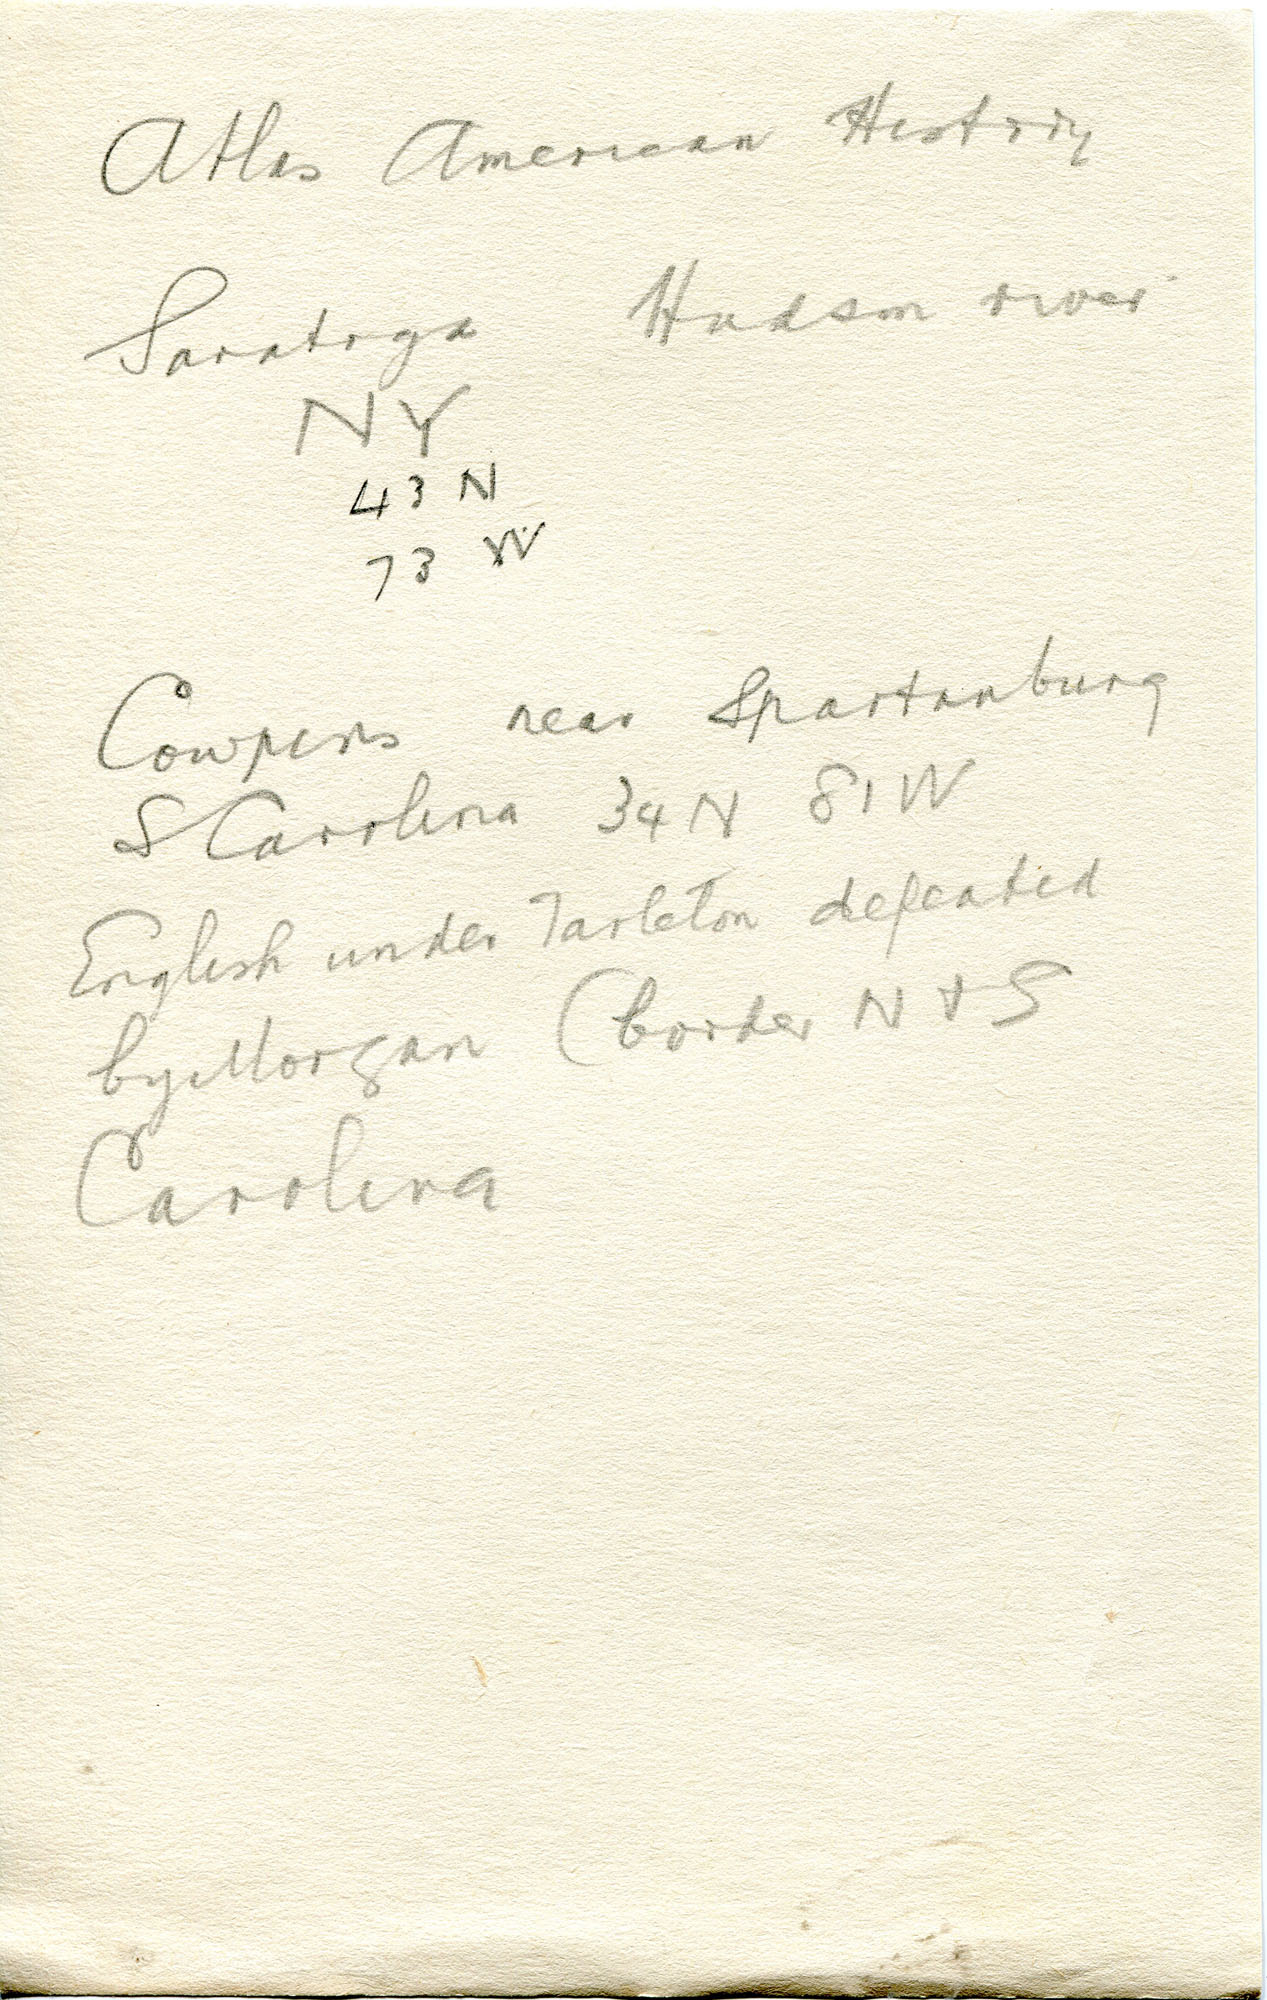 Atlas American History
Saratoga Hudson river
NY
43 N
73 W
Cowpens near Spartanburg
S Carolina 34N 81W
English under Tarleton defeated
by Morgan (border N + S
Carolina